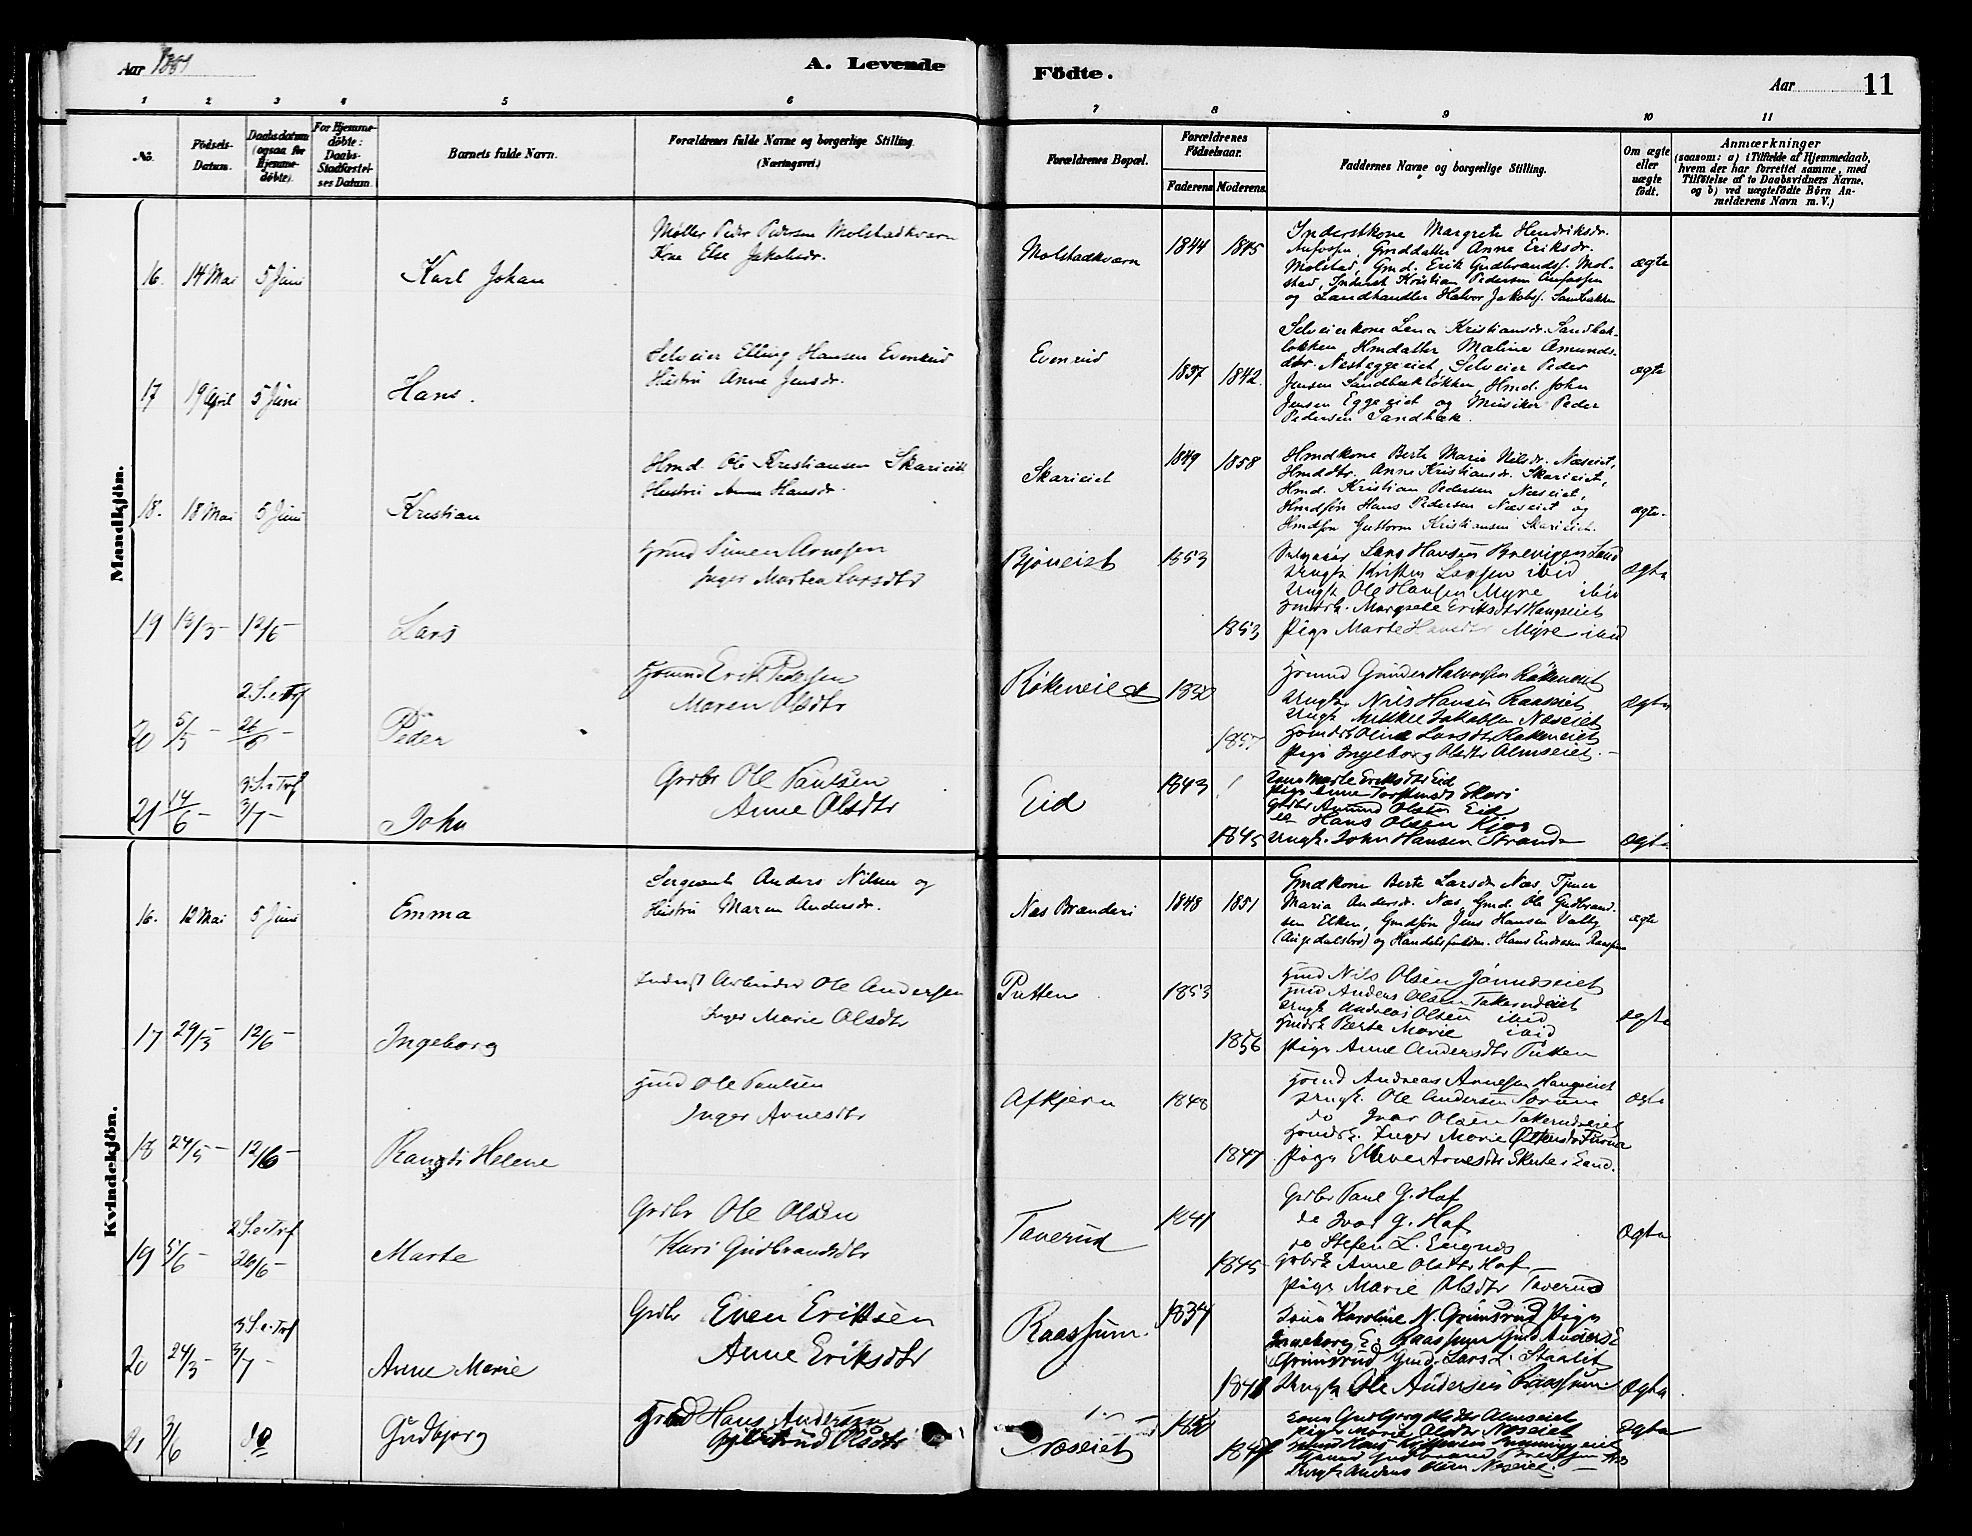 Aar 1881
A. Levende
Födte.
Aar
11
1 2 3 4 5 6 7 8 9 10 11
No.
Födsels-Datum.
Daabsdatum (ogsaa for Hjemme-döbte).
For Hjemme-döbte: Daabs-Stadfæstel-ses Datum.
Barnets fulde Navn.
Forældrenes fulde Navne og borgerlige Stilling. (Næringsvei.)
Forældrenes Bopæl.
Forældrenes Födselsaar.
Faderens Moderens.
Faddernes Navne og borgerlige Stilling.
Om ægte eller uægte födt.
Anmærkninger
(saasom: a) i Tilfælde af Hjemmedaab, hvem der har forrettet samme, med Tilföielse af to Daabsvidners Navne, og b) ved uægtefödte Börn An-melderens Navn m. V.)
Mandkjön.
16. 14 Mai 5 Juni Karl Johan
Møller Peder Pedersen Molstadkværn
Kone Else Jakobsdr.
Molstadkværn 1844 1845
Inderstkone Margrete Hendriksdr.
Aufossen Gmddatter Anne Eriksdr.
Molstad, Gmd. Erik Gudbrands. Mol-
stad, Inderst Kristian Pedersen Aufossen
og Landhandler Halvor Jakobs. Sandbakken
ægte
17 19 April 5 Juni Hans.
Selveier Elling Hansen Evenrud
Hustru Anne Jensdr.
Evenrud 1837 1842.
Selveierkone Lena Kristiansdr. Sandbak-
løkken Hmdatter Maline Amunds-
dtr. Næseggeeiet, Selveier Peder
Jensen Sandbækløkken, Hmd. John
Jensen Eggeeiet og Musiker Peder
Pedersen Sandbæk.
ægte
18. 18 Mai 5 Juni Kristian
Hmd. Ole Kristiansen Skarieiet
Hustru Anne Hansdr.
Skarieiet 1849 1858
Hmdkone Berte Marie Nilsdr. Næseiet,
Hmddtr. Anne Kristiansdr. Skarieiet,
Hmd. Kristian Pedersen Næseiet,
Hmdsøn Hans Pedersen Næseiet og
Hmdsøn Guttorm Kristiansen Skarieiet.
ægte.
19 13/3 - 12/6 - Lars
Hmd Simen Arnesen
Inger Martea Larsdtr
Bjøneiet 1853 1853
Lars Hansen Brevigen Land
Ungk Kristen Larsen ibid
Ungk Ole Hansen Myre ibid
Margrete Eriksdtr Haugseiet
Pige Marte Hansdtr Myre ibid
ægte
20 5/5 - 2. S. e. Trf 26/6 - Peder
Hmd Erik Pedersen
Maren Olsdtr
Røkeneiet 1850
Hmd Gunder Halvorsen Røkeneiet
Ungk Nils Hansen Raasseiet
Ungk Mikkel Jakobsen Næseiet
Oline Larsdtr Røkeneiet
Pige Ingeborg Olsdtr Almseiet.
ægte
21 14/6 - 3. S. e. Trf 3/7 - John
Grdbr Ole Paulsen
Anne Olsdtr
Eid 1843 1845
Kona Marte Eriksdtr Eid
Pige Anne Skari
Grdbr Amund Olsen Eid
Hans Olsen Kjos
Ungk. John Hansen Strande
ægte
Kvindekjön.
16. 12 Mai 5 Juni Emma
Sergeant Anders Nilsen og
Hustru Maren Andersdr.
Næs Branderi 1848 1851
Gmdkone Berte Larsdr Næs, Tjener
Maria Andersdr. Næs, Gmd. Ole Gudbrand-
sen Elken, Gmdsøn Jens Hansen Valby
og Handelsfuldm. Hans Endresen Raassum
ægte
17 29/3 - 12/6 - Ingeborg
Inderst Arbeider Ole Andersen
Inger Marie Olsdtr
Putten 1853 1856
Hmd Nils Olsen Jønneseiet
Hmd Anders Olsen Takerudeiet
Ungk Andreas Olsen ibid
Berte Marie ibid
Pige Anne Andersdtr Putten
ægte
18 24/5 - 12/6 - Rangdi Helene
Hmd Ole Paulsen
Inger Arnesdtr
Afkjern 1848 1847
Hmd Andreas Arnesen Haugseiet
Ungk. Ole Andersen
do Ivar Olsen Takerudeiet
Inger Marie
Pige Arnesdtr i Land.
ægte
19 5/6 - 2. S. e. Trf 26/6 - Marte
Grdbr Ole Olsen
Kari Gudbrandsdtr
Taverud 1841 1845
Grdbr Paul G. Hof
do Ivar G. Hof
do Stefen L. Engnæs
Anne Olsdtr Hof
Pige Marie Olsdtr Taverud
ægte
20 24/3 - 3. S. e. Trf 3/7 - Anne Marie
Grdbr Even Eriksen
Anne Eriksdtr
Raassum. 1834 1841
Kona Karoline N. Grimsrud Pige
Ingeborg E. Raassum Gmd Anders E
Grimsrud Gmd. Lars L.
Ungk Ole Andersen Raassum.
ægte
21 2/6 do Gudbjørg
Hmd Hans Andersen
Olsdtr
Næseiet 1850
Kona Gudbjørg Olsdtr Almseiet
Pige Marie Olsdtr Næseiet
Ungk Anders Næseiet.
ægte